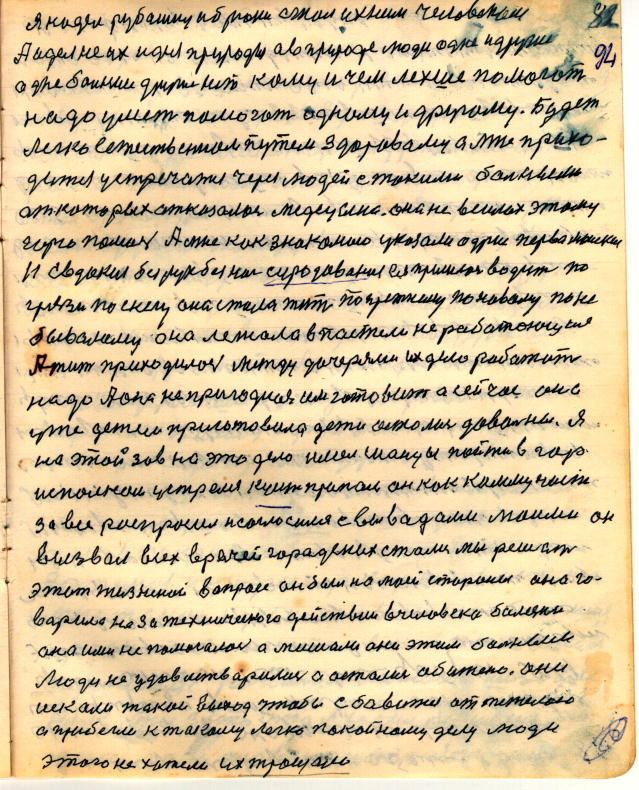 Я надел рубашку и брюки стал ихним человеком 82
А идея не их идея природы а в природе люди одне и другие 94
одне больные другие нет кому и чем лехше помогат
надо умет помогат одному и другому. Будет
легко естественом путем здоровому а мне прихо-
дится устречатся через людей с такими болными
от которых отказалас медецина. она не в силах этому
горю помоч А мне как знакомого указали одни
И Евдокия без рук без ног сиродованая ей пришлос водит по
грязи по снегу она стала жит по прежнему по новому по не
бывалому она лежала в постели не работающия
А жит приходилос между дочерями их дело работат
надо А она не пригодная им готовит а сейчас она
уже детям приготовила дети остолис доволны. Я
на этой зов на это дело имел шансы пойти в гор
исполком устретил он как комунист
за все роспросил и согласился с вывадами моими он
вызвал всех врачей городских стали мы решат
этот жизненой вапрос он был на моей стороны она го-
варила на за техническое действии в человека болезни
она ими не помогалос а мишали они этим болным
Люди не удовлетварилис а осталис обижено. они
искали такой выход чтобы сбавится от тяжелого
а прибегли к такому легко покойному делу люди
этого не хотели их прошено